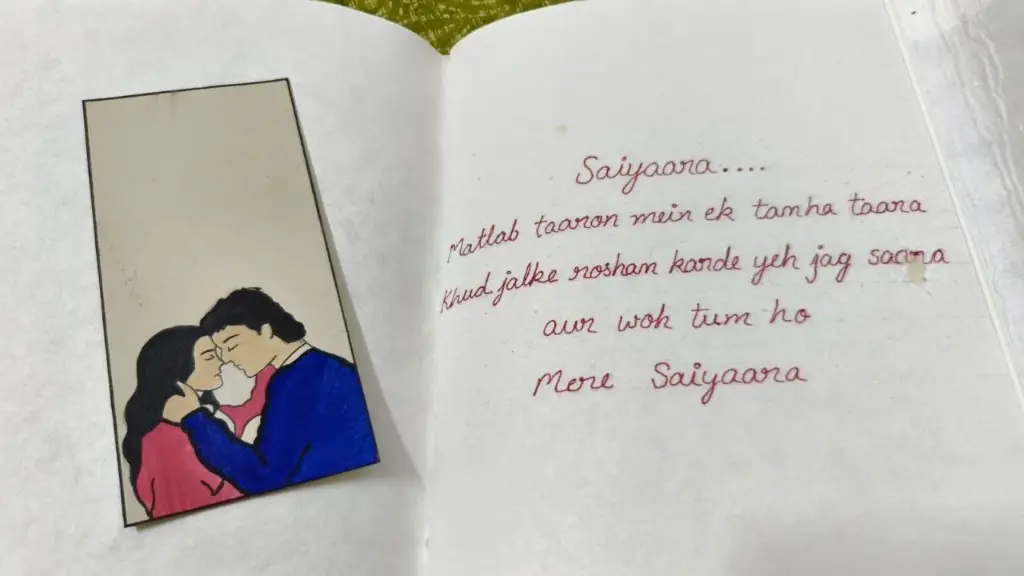 Saiyaara....
Matlab taaron mein ek tamha taara
Khud jalke rosham karde yeh jag saara
aur woh tum ho
Mere Saiyaara